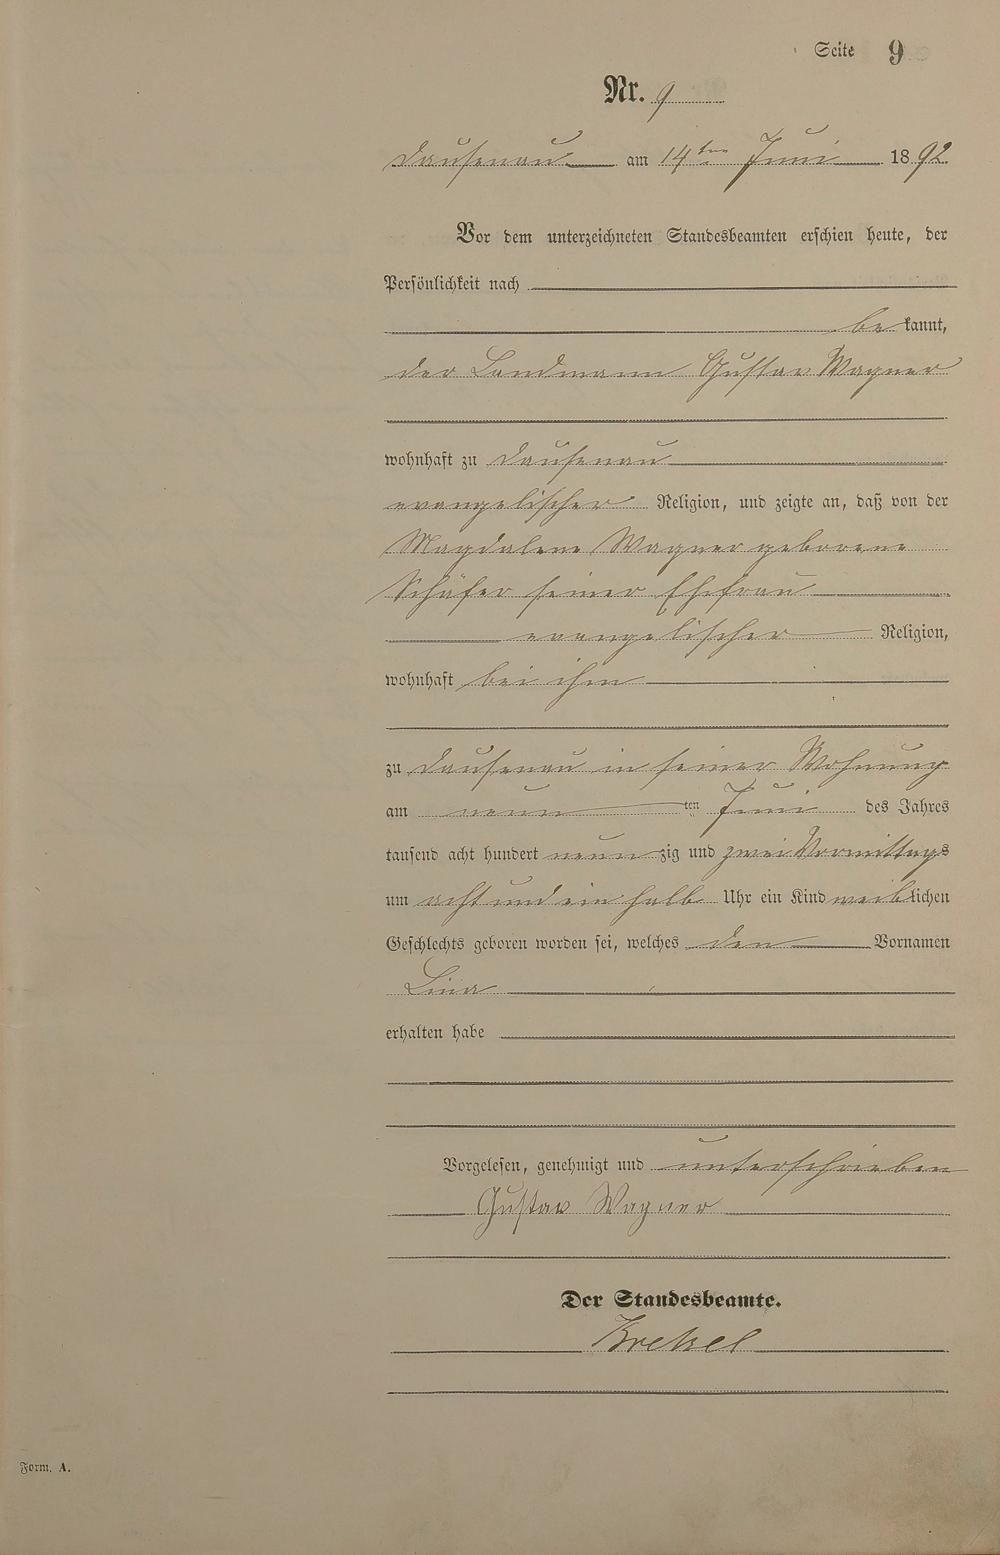 Seite 9
Nr. 9
Dausenau am 14ten Juni 1892
Vor dem unterzeichneten Standesbeamten erschien heute, der
Persönlichkeit nach
bekannt,
der Landmann Gustav Wagner
wohnhaft zu Dausenau
evangelischer Religion, und zeigte an, daß von der
Magdalene Wagner geborene
Schäfer seiner Ehefrau
evangelischer Religion,
wohnhaft bei ihm
zu Dausenau in seiner Wohnung
am neunten Juni des Jahres
tausend acht hundert neunzig und zwei Vormittags
um acht und ein halb Uhr ein Kind weiblichen
Geschlechts geboren worden sei, welches den Vornamen
Lina
erhalten habe
Vorgelesen, genehmigt und unterschrieben
Gustav Wagner
Der Standesbeamte.
Form. A.